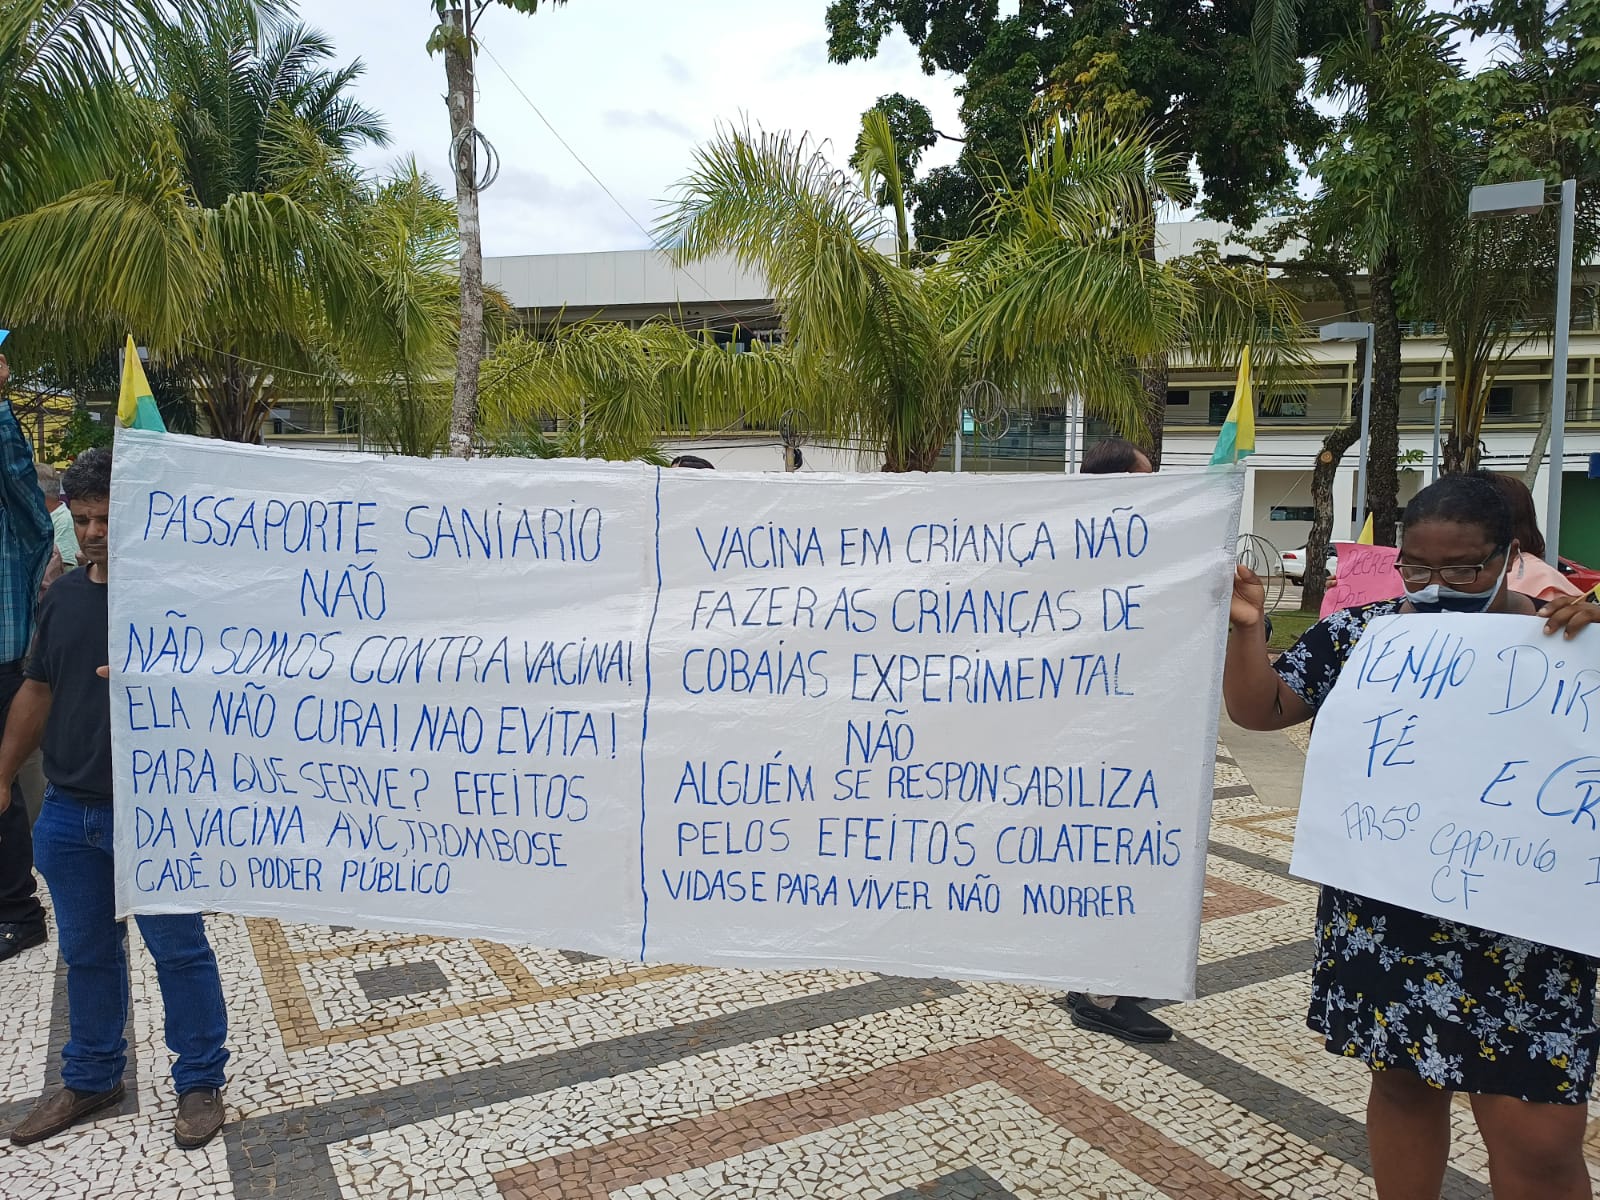 PASSAPORTE SANIARIO
NÃO
NÃO SOMOS CONTRA VACINA!
ELA NÃO CURA! NAO EVITA!
PARA QUE SERVE? EFEITOS
DA VACINA AVC, TROMBOSE
CADÊ O PODER PÚBLICO
VACINA EM CRIANÇA NÃO
FAZER AS CRIANÇAS DE
COBAIAS EXPERIMENTAL
NÃO
ALGUÉM SE RESPONSABILIZA
PELOS EFEITOS COLATERAIS
VIDAS E PARA VIVER NÃO MORRER
DECRET
TENHO DIR
FÊ
E CR
AR5º CAPITULO I
CF